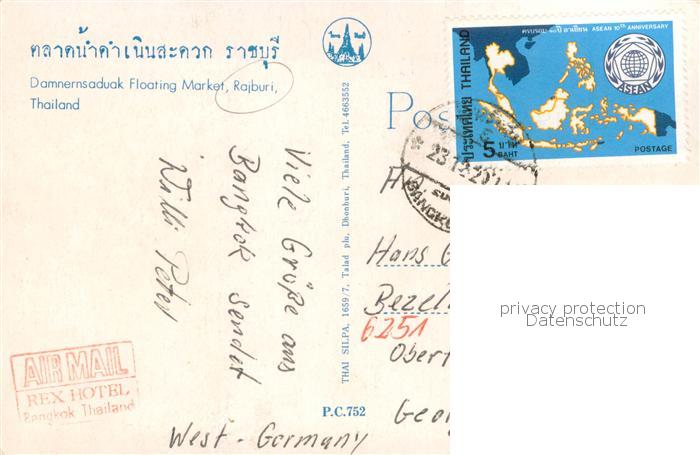 ตลาดน้ำดำเนินสะดวก ราชบุรี
Damnernsaduak Floating Market, Rajburi,
Thailand
Viele Grüße aus
Bangkok sendet
Willi Peter
AIR MAIL
REX HOTEL
Bangkok Thailand
THAI SILPA, 1659/7, Talad plu, Dhonburi, Thailand. Tel. 4663552
P.C.752
Pos
ครบรอบ ๑๐ปี อาเซียน ASEAN 10TH ANNIVERSARY
ประเทศไทย THAILAND
ASEAN
5 บาท
BAHT
POSTAGE
23
BANGKO
H
Hans G
Bezel
6251
Obert
Geor
West-Germany
privacy protection
Datenschutz